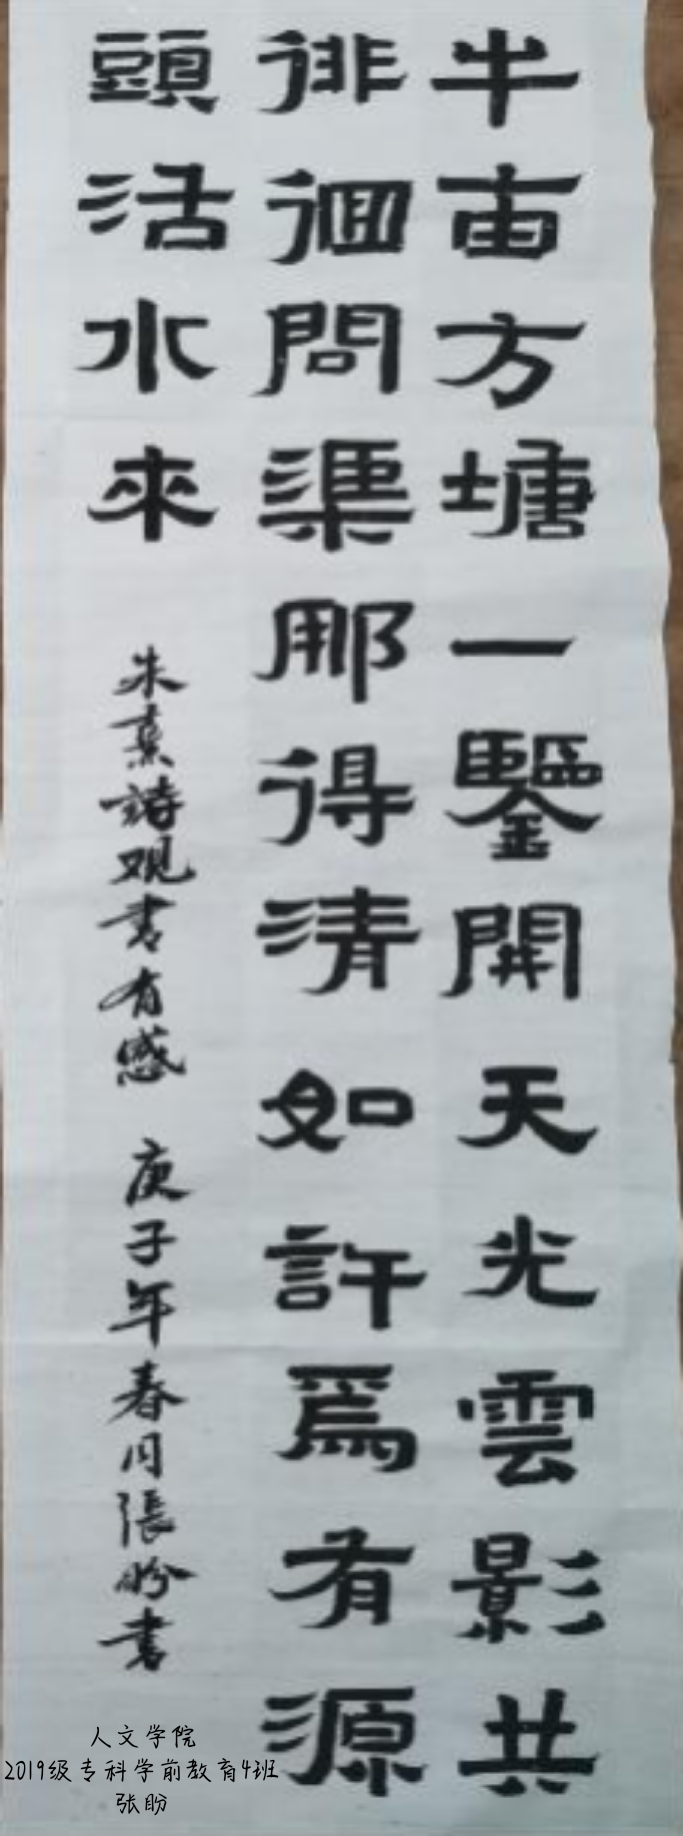 半亩方塘一鑒開天光雲影共
徘徊問渠那得清如許爲有源
頭活水來
朱熹詩观书有感 庚子年春月張盼书
人文学院
2019级专科学前教育4班
张盼